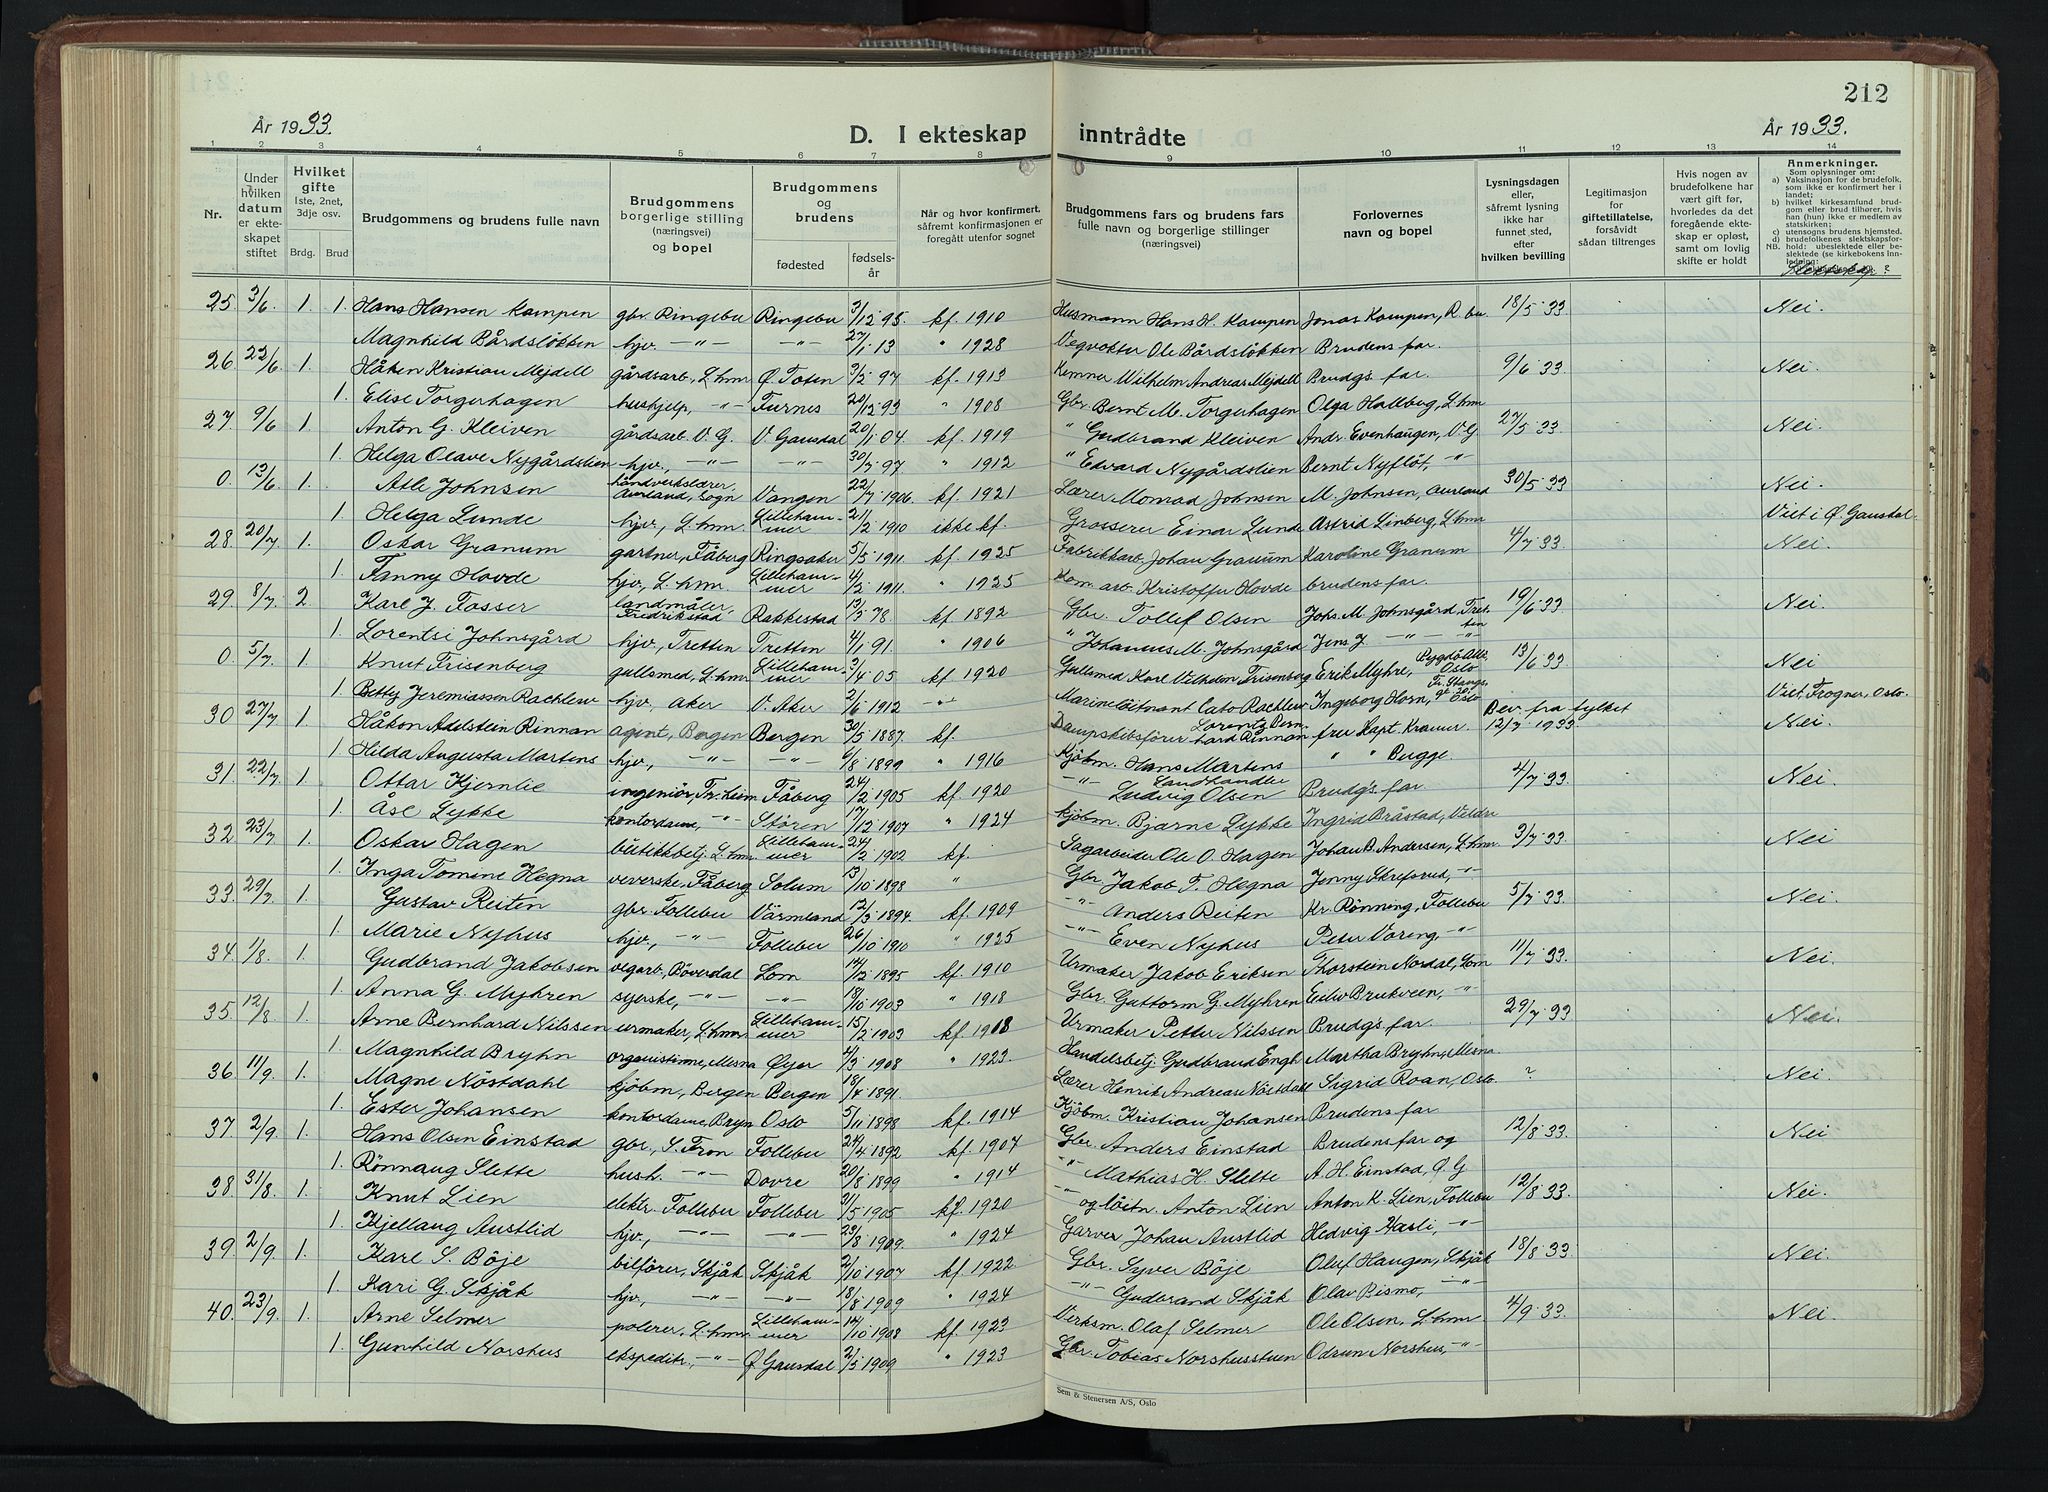 212
År 1933.
D. I ekteskap inntrådte
År 1933.
1 2 3 4 5 6 7 8 9 10 11 12 13 14
Nr.
Under hvilken datum er ekteskapet stiftet
Hvilket gifte 1ste, 2net, 3dje osv.
Brdg. Brud
Brudgommens og brudens fulle navn
Brudgommens borgerlige stilling (næringsvei) og bopel
Brudgommens og brudens
fødested fødselsår
Når og hvor konfirmert, såfremt konfirmasjonen er foregått utenfor sognet
Brudgommens fars og brudens fars fulle navn og borgerlige stillinger (næringsvei)
Forlovernes navn og bopel
Lysningsdagen eller, såfremt lysning ikke har funnet sted, efter hvilken bevilling
Legitimasjon for giftetillatelse, forsåvidt sådan tiltrenges
Hvis nogen av brudefolkene har vært gift før, hvorledes da det foregående ekteskap er opløst, samt om lovlig skifte er holdt
Anmerkninger.
Som oplysninger om:
a) Vaksinasjon for de brudefolk, som ikke er konfirmert her i landet;
b) hvilket kirkesamfund brudgom eller brud tilhører, hvis han (hun) ikke er medlem av statskirken;
c) utensogns brudens hjemsted.
d) brudefolkenes slektskapsforhold: ubeslektede eller beslektede (se kirkebokens innledning;
NB.
25 3/6 1. Hans Hansen Kampen gbr. Ringebu Ringebu 3/12 95. kf. 1910 Husmann Hans H. Kampen Jonas Kampen, R.bu 18/5 33 Nei.
1. Magnhild Bårdsløkken hjv. —"— —"— 27/1 13 " 1928 Vegvokter Ole Bårdsløkken Brudens far.
26 22/6 1. Håken Kristian Mejdell gårdsarb., L.hmr Ø. Toten 3/2 97 kf. 1913 Kemner Wilhelm Andreas Mejdell Brudg's far. 9/6 33. Nei.
1. Elise Torgerhagen hushjelp, —"— Furnes 20/12 93 " 1908 Gbr. Bernt M. Torgerhagen Olga Hallberg, L.hmr
27. 9/6 1. Anton G. Kleiven gårdsarb. V. G. V. Gausdal 20/1 04. kf. 1919 " Gudbrand Kleiven Andr. Evenhaugen, V.G. 27/5 33. Nei.
1. Helga Olave Nygårdslien hjv., —"— —"— 30/7 97 " 1912 " Edvard Nygårdslien Bernt Nyflöt, —"—
0. 13/6 1. Atle Johnsen håndverkslærer, Aurland, Sogn Vangen 22/7 1906. kf. 1921 Lærer Momad Johnsen M. Johnsen, Aurland 30/5 33 Nei.
1. Helga Lunde hjv., L.hmr. Lillehammer 21/2 1910 ikke kf. Grosserer Einar Lunde Astrid Linberg, L.hmr Viet i Ø. Gausdal.
28. 20/7 1. Oskar Granum gartner, Fåberg Ringsaker 5/5 1911. kf. 1925 Fabrikkarb. Johan Granum Karoline Granum 4/7 33. Nei.
1. Fanny Hovde hjv., L.hmr. Lillehammer 4/2 1911. " 1925 Kom. arb. Kristoffer Hovde brudens far.
29. 8/7 2. Karl J. Fosser landmåler, Fredrikstad Rakkestad 13/3 78. kf. 1892 Gbr. Tollef Olsen Johs. M. Johnsgård, Tretten 19/6 33 Nei.
1. Lorentse Johnsgård hjv., Tretten Tretten 4/1 91. " 1906 " Johannes M. Johnsgård Jens J. —"— —"—
0. 5/7 1. Knut Frisenberg gullsmed, L.hmr. Lillehammer 3/4 05 kf. 1920 Gullsmed Karl Vilhelm Frisenberg Erik Myhre, Bygdö Allé, Oslo 13/6 33. Nei
1. Betty Jeremiassen Rachlew hjv. Aker V. Aker 2/6 1912 —"— Marinelöitnant Cato Rachlew Ingeborg Horn, Fr. Stangs gt. 20 Oslo Viet. Frogner, Oslo.
30 27/7 1. Håkon Adelstein Rinnan agent, Bergen Bergen 30/5 1887. kf. Dampskibsfører Lorentz Bernhard Rinnan frer Kapt. Kramer Bev. fra fylket 12/7 1933. Nei.
1. Hilda Augusta Martens hjv., —"— —"— 6/8 1899 " 1916 Kjöbm. Hans Martens " " Bugge.
31. 22/7 1. Ottar Kjernlie ingeniør, Tr.heim Fåberg 24/2 1905 kf. 1920 —"— Landhandler Ludvig Olsen Brudg's far 4/7 33. Nei
1. Åse Lykke kontordame, —"— Stören 17/12 1907 " 1924 Kjöbm. Bjarne Lykke Ingrid Bråstad, Veldre
32 23/7 1. Oskar Hagen butikkbetj. L.hmr Lillehammer 24/2 1902 kf. Sagarbeider Ole O. Hagen Johan B. Andersen, L.hmr 3/7 33. Nei
1. Inga Tomine Hegna veverske, Fåberg Solum 13/10 1898 " Gbr. Jakob T. Hegna Jenny Skrefsrud, —"—
33. 29/7 1. Gustav Reiten gbr. Follebu Värmland 12/3 1894. kf. 1909 —"— Anders Reiten Kr. Rönning, Follebu 5/7 33. Nei.
1. Marie Nyhus hjv., —"— Follebu 26/10 1910 " 1925 —"— Even Nyhus Peter Voreng, —"—
34. 1/8. 1. Gudbrand Jakobsen vegarb., Böverdal Lom 14/12 1895 kf. 1910 Urmaker Jakob Eriksen Thorstein Nordal, Lom 11/7 33. Nei.
1. Anna G. Myhren syerske, —"— —"— 18/10 1903 " 1918 Gbr. Guttorm G. Myhren Eiliv Brukveen, —"—
35. 12/8 1. Arne Bernhard Nilssen urmaker, L.hmr. Lillehammer 15/2 1903 kf. 1918 Urmaker Petter Nilssen Brudg's far. 29/7 33 Nei.
1. Magnhild Bryhn organistinne, Mesna Øyer 4/3 1908 " 1923. Handelsbetj. Gudbrand Engh Martha Bryhn, Mesna
36 11/9. 1. Magne Nöstdahl kjöbm., Bergen Bergen 18/4 1891. Lærer Henrik Andreas Nöstdahl Sigrid Roan, Oslo. ? Nei.
1. Ester Johansen kontordame, Bryn Oslo 5/11 1898 kf. 1914 Kjöbm. Kristian Johansen Brudens far
37. 2/9. 1. Hans Olsen Einstad gbr., S. Fron Follebu 24/4 1892 kf. 1907 Gbr. Anders Einstad Brudens far og 12/8 33. Nei
1. Rönnaug Slette hush. —"— Dovre 20/8 1899 " 1914 —"— Mathias H. Slette A. H. Einstad, Ø. G
38. 31/8. 1. Knut Lien elektr. Follebu Follebu 21/5 1905 kf. 1920 —"— og löitn. Anton Lien Anton K. Lien, Follebu 12/8 33. Nei.
1. Kjellaug Austlid hjv., —"— —"— 23/8 1909. " 1924 Garver Johan Austlid Hedvig Hasli, —"—
39. 2/9. 1. Karl S. Böje bilfører, Skjåk Skjåk 2/10 1907 kf. 1922 Gbr. Syver Böje Oluf Haugen, Skjåk 18/8 33. Nei
1. Kari G. Skjåk hjv., —"— —"— 18/8 1909 " 1924 —"— Gudbrand Skjåk Olav Bismo, —"—
40. 23/9. 1. Arne Selmer polerer, L.hmr Lillehammer 14/10 1908 kf. 1923 Verksm. Olaf Selmer Ole Olsen, L.hmr 4/9 33. Nei.
1. Gunhild Norshus ekspeditr., —"— Ø. Gausdal 2/5 1909 " 1923 Gbr. Tobias Norshusstuen Odrun Norshus, —"—
Sem & Stenersen A/S, Oslo